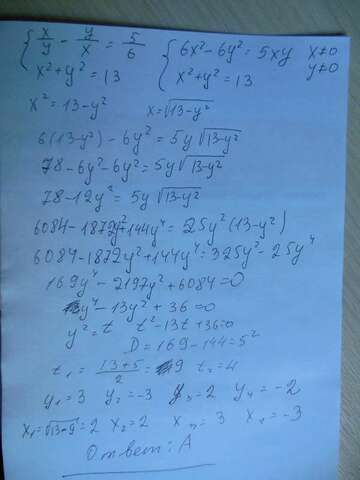 { x/y - y/x = 5/6 { 6x² - 6y² = 5xy x≠0
x² + y² = 13 x² + y² = 13 y≠0
x² = 13 - y² x = √13-y²
6(13-y²) - 6y² = 5y √13-y²
78 - 6y² - 6y² = 5y √13-y²
78 - 12y² = 5y √13-y²
6084 - 1872y² + 144y⁴ = 25y² (13-y²)
6084 - 1872y² + 144y⁴ = 325y² - 25y⁴
169y⁴ - 2197y² + 6084 = 0
y⁴ - 13y² + 36 = 0
y² = t t² - 13t + 36 = 0
D = 169 - 144 = 5²
t₁ = (13+5)/2 = 9 t₂ = 4
y₁ = 3 y₂ = -3 y₃ = 2 y₄ = -2
x₁ = √13-9 = 2 x₂ = 2 x₃ = 3 x₄ = -3
Ответ: А